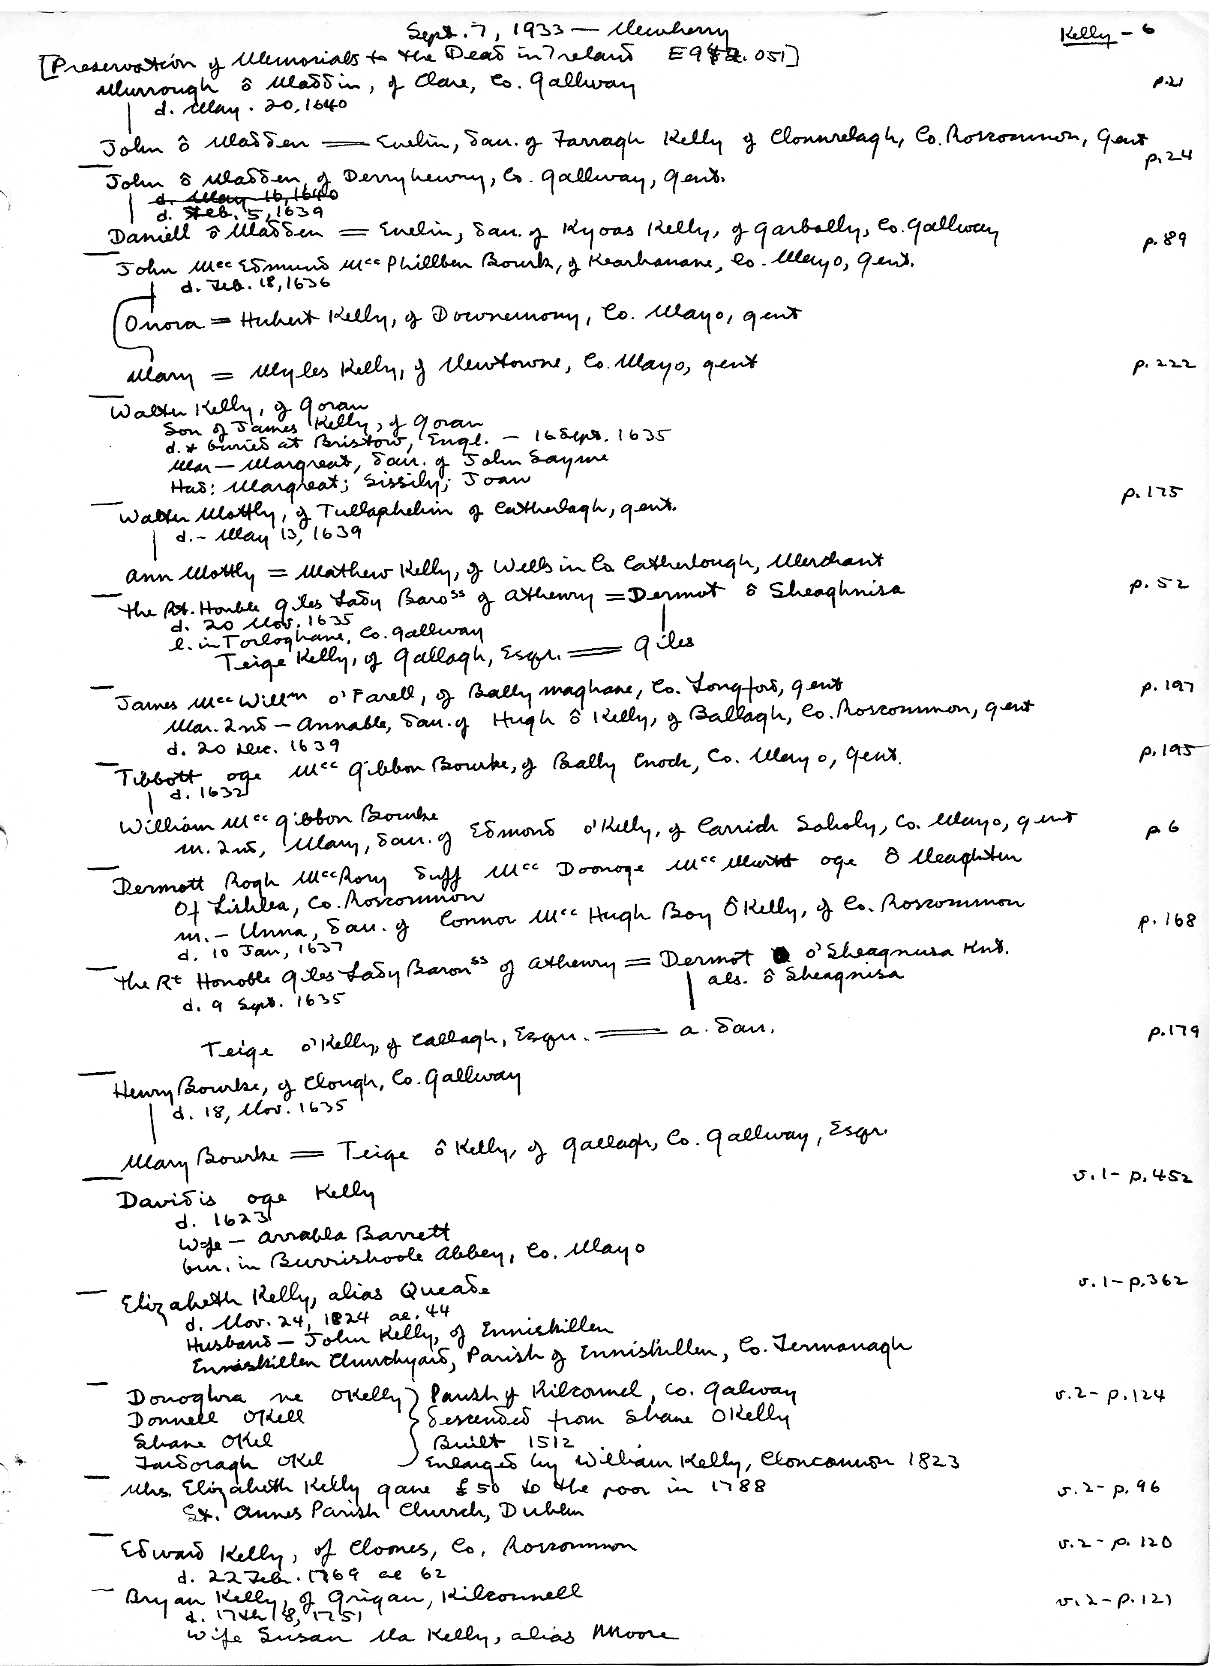 Sept. 7, 1933 — Newberry
Kelly - 6
[Preservation of Memorials to the Dead in Ireland E942.051]
Murrough ô Maddin, of Clare, Co. Gallway p.21
d. May. 20, 1640
John ô Madden = Evelin, dau. of Farragh Kelly of Clonnrelagh, Co. Roscommon, gent
p.24
John ô Madden, of Derryhewny, Co. Gallway, gent.
d. May 16, 1640
d. Feb. 5, 1639
Daniell ô Madden = Evelin, dau. of Kyoas Kelly, of Garbally, Co. Gallway
p.89
John Mcc Edmund Mcc Phillben Bourk, of Kearhanane, Co. Mayo, gent.
d. Feb. 18, 1636
Onora = Hubert Kelly, of Downemony, Co. Mayo, gent
Mary = Myles Kelly, of Newtowne, Co. Mayo, gent p.222
Walter Kelly, of Goran
Son of James Kelly, of Goran
d. & buried at Bristow, Engl. - 16 Sept. 1635
Mar — Margreat, dau. of John Sayme
Had: Margreat; Sissily; Joan
p.175
Walter Mottly, of Tullaphelim of Catherlagh, gent.
d. - May 13, 1639
Ann Mottly = Mathew Kelly, of Wells in Co Catherlough, Merchant
p.52
The Rt. Honble Giles Lady Baross of Athenry = Dermot ô Sheaghnisa
d. 20 Nov. 1635
l. in Torloghane, Co. Gallway
Teige Kelly, of Gallagh, Esqr. = Giles
p.197
James Mcc Willm o'Farell, of Ballymaghane, Co. Longford, gent
Mar. 2nd - Annable, dau. of Hugh ô Kelly, of Ballagh, Co. Roscommon, gent
d. 20 Dec. 1639
p.195
Tibbott oge Mcc Gibbon Bourke, of Bally Enock, Co. Mayo, gent.
d. 1632
William Mcc Gibbon Bourke
m. 2nd, Mary, dau. of Edmond o'Kelly, of Carrick Soholy, Co. Mayo, gent
p6
Dermott Rogh Mcc Rory duff Mcc Doonoge Mcc oge ô Neaghten
Of Lishlea, Co. Roscommon
m. - Unna, dau. of Connor Mcc Hugh Boy ÔKelly, of Co. Roscommon
d. 10 Jan, 1637
p.168
The Rt Honoble Giles Lady Baronss of Athenry = Dermot o'Sheagnusa Knt.
d. 9 Sept. 1635
als. ô Sheagnisa
Teige o'Kelly, of Callagh, Esqr. = a. dau.
p.179
Henry Bourke, of Clough, Co. Gallway
d. 18, Nov. 1635
Mary Bourke = Teige ô Kelly, of Gallagh, Co. Gallway, Esqr.
v.1 - p.452
Davidis oge Kelly
d. 1623
Wife - Arrabla Barrett
bur. in Burrishoole Abbey, Co. Mayo
v.1 - p.362
Elizabeth Kelly, alias Queade
d. Nov. 24, 1824 ae. 44
Husband - John Kelly, of Enniskillen
Enniskillen Churchyard, Parish of Enniskillen, Co. Fermanagh
Donoghra ne OKelly } Parish of Kilconnel, Co. Galway v.2 - p.124
Donnell OKell descended from Shane OKelly
Shane OKel Built 1512
Fardoragh OKel Enlarged by William Kelly, Cloncannon 1823
Mrs. Elizabeth Kelly gave £50 to the poor in 1788 v.2 - p.96
St. Annes Parish Church, Dublin
Edward Kelly, of Cloones, Co. Roscommon v.2 - p.120
d. 22 Feb. 1769 ae 62
Bryan Kelly, of Grigan, Kilconnell v.2 - p.121
d. 17th 1751
Wife Susan Na Kelly, alias Moore